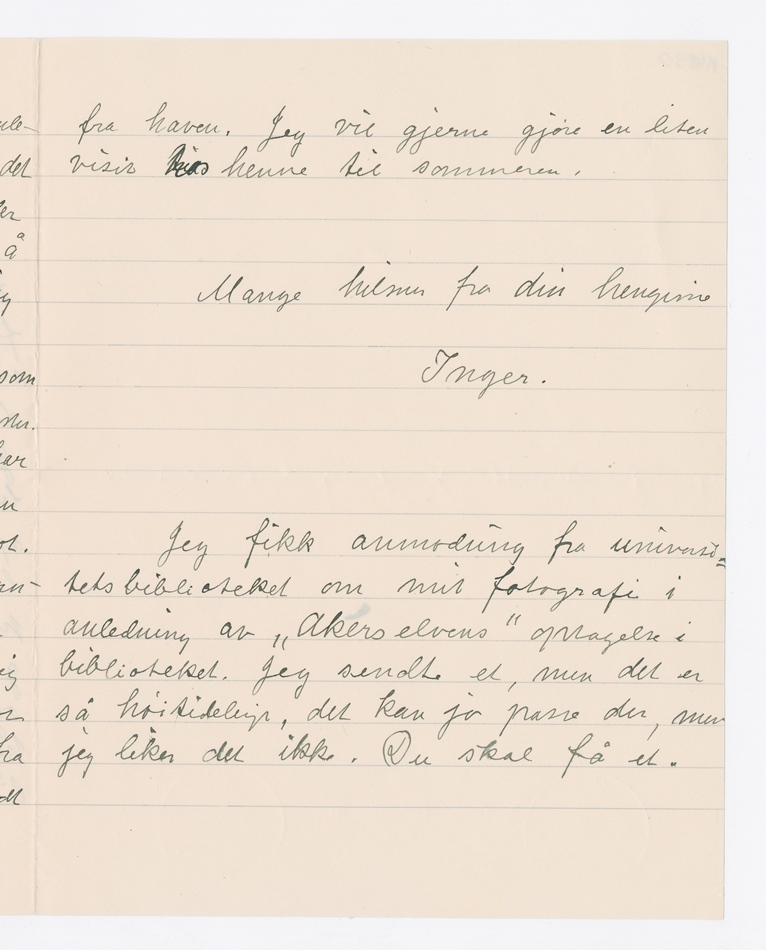 fra haven. Jeg vil gjerne gjøre en liten
visit hos henne til sommeren.
Mange hilsner fra din hengivne
Inger.
Jeg fikk anmodning fra universi=
tetsbiblioteket om mit fotografi i
anledning av „Akerselvens" optagelse i
biblioteket. Jeg sendte et, men det er
så høitidelig, det kan jo passe der, men
jeg liker det ikke. Du skal få et.
det
å
som
har
fra